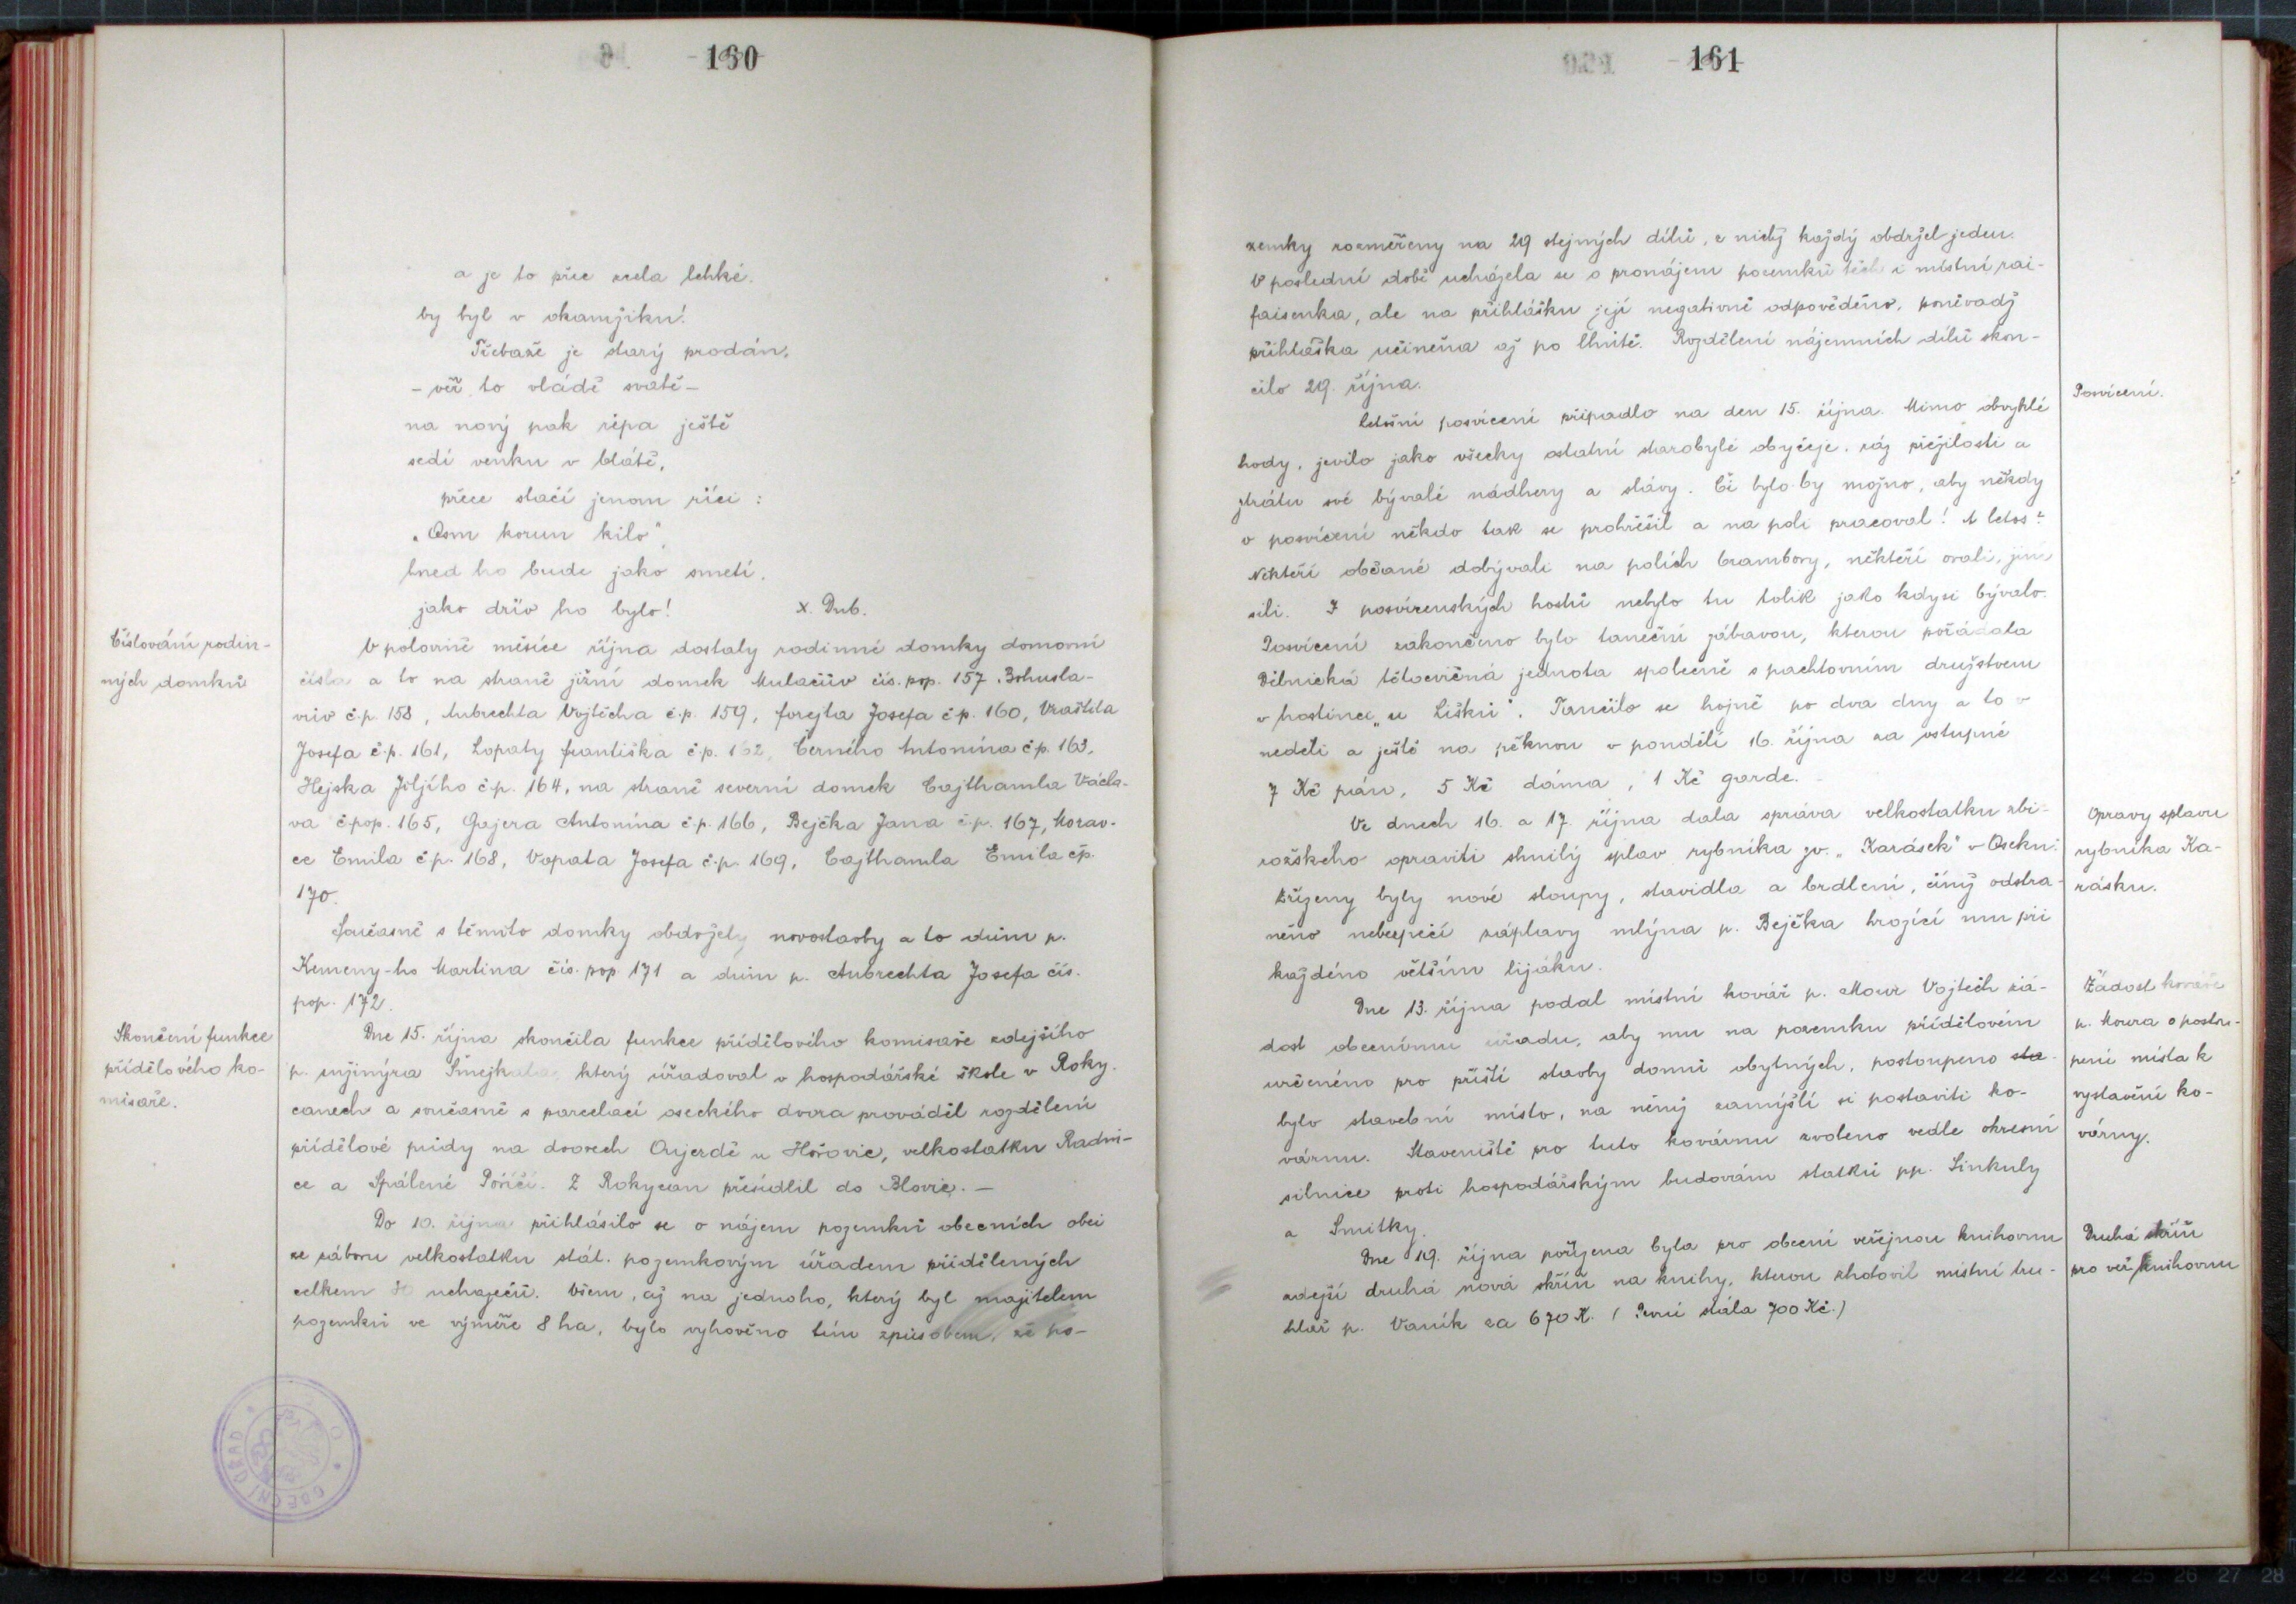 160
a je to přec zcela lehké.
by byl v okamžiku!
Třebaže je starý prodán,
- věř to vládě svatě -
na nový pak řepa ještě
sedí venku v blátě,
přece stačí jenom říci:
„Osm korun kilo",
hned ho bude jako smetí,
jako dřív ho bylo! X. Dub.
Číslování rodin-
ných domků
V polovině měsíce října dostaly rodinné domky domovní
čísla a to na straně jižní domek Mulačův čís. pop. 157, Bohusla-
vův č.p. 158, Aubrechta Vojtěcha č.p. 159, Forejta Josefa č.p. 160, Vraštila
Josefa č.p. 161, Lopaty Františka č.p. 162, Černého Antonína č.p. 163,
Hejska Jiljího č.p. 164, na straně severní domek Cajthamla Václa-
va č.pop. 165, Gajera Antonína č.p. 166, Bejčka Jana č.p. 167, Morav-
ce Emila č.p. 168, Vopata Josefa č.p. 169, Cajthamla Emila čp.
170.
Současně s těmito domky obdržely novostavby a to dům p.
Kemeny-ho Martina čís. pop 171 a dům p. Aubrechta Josefa čís.
pop. 172.
Skončení funkce
přídělového ko-
misaře.
Dne 15. října skončila funkce přídělového komisaře zdejšího
p. inžinýra Šmejkala, který úřadoval v hospodářské škole v Roky-
canech a současně s parcelací oseckého dvora prováděl rozdělení
přídělové půdy na dvorech Ovjezdě u Hořovic, velkostatku Radni-
ce a Spálené Poříčí. Z Rokycan přesídlil do Blovic. -
Do 10. října přihlásilo se o nájem pozemků obecních obci
ze záboru velkostatku stát. pozemkovým úřadem přidělených
celkem 30 uchazečů. Všem, až na jednoho, který byl majitelem
pozemků ve výměře 8 ha, bylo vyhověno tím způsobem, že po-
OBECNÍ ÚŘAD
161
zemky rozměřeny na 29 stejných dílů, z nichž každý obdržel jeden.
V poslední době ucházela se o pronájem pozemků těch i místní rai-
faisenka, ale na přihlášku její negativně odpověděno, poněvadž
přihláška učiněna až po lhůtě. Rozdělení nájemních dílů skon-
čilo 29. října.
Posvícení.
Letošní posvícení připadlo na den 15. října. Mimo obvyklé
hody, jevilo jako všecky ostatní starobylé obyčeje, ráz přežilosti a
ztrátu své bývalé nádhery a slávy. Či bylo by možno, aby někdy
o posvícení někdo tak se prohřešil a na poli pracoval! A letos?
Někteří občané dobývali na polích brambory, někteří orali, jiní
sili. I posvícenských hostů nebylo tu tolik jako kdysi bývalo.
Posvícení zakončeno bylo taneční zábavou, kterou pořádala
Dělnická tělocvičná jednota společně s pachtovním družstvem
v hostinci „u Lišků". Tančilo se hojně po dva dny a to v
neděli a ještě na pěknou v pondělí 16. října za vstupné
7 Kč pán, 5 Kč dáma, 1 Kč garde.
Opravy splavu
rybníka Ka-
rásku.
Ve dnech 16. a 17. října dala správa velkostatku zbi-
rožského opraviti shnilý splav rybníka zv. „Karásek" v Oseku.
Zřízeny byly nové sloupy, stavidla a brdlení, čímž odstra-
něno nebezpečí záplavy mlýna p. Bejčka hrozící mu při
každéno větším lijáku.
Žádost kováře
p. Moura o postou-
pení místa k
vystavění ko-
várny.
Dne 13. října podal místní kovář p. Mour Vojtěch žá-
dost obecnímu úřadu, aby mu na pozemku přídělovém
určeného pro příští stavby domů obytných, postoupeno sta-
bylo stavební místo, na němž zamýšlí si postaviti ko-
várnu. Staveniště pro tuto kovárnu zvoleno vedle okresní
silnice proti hospodářským budovám statků pp. Sinkuly
a Smitky.
Druhá skříň
pro veř. knihovnu
Dne 19. října pořízena byla pro obecní veřejnou knihovnu
zdejší druhá nová skříň na knihy, kterou zhotovil místní tru-
hlář p. Vaník za 670 K. (První stála 700 Kč.)